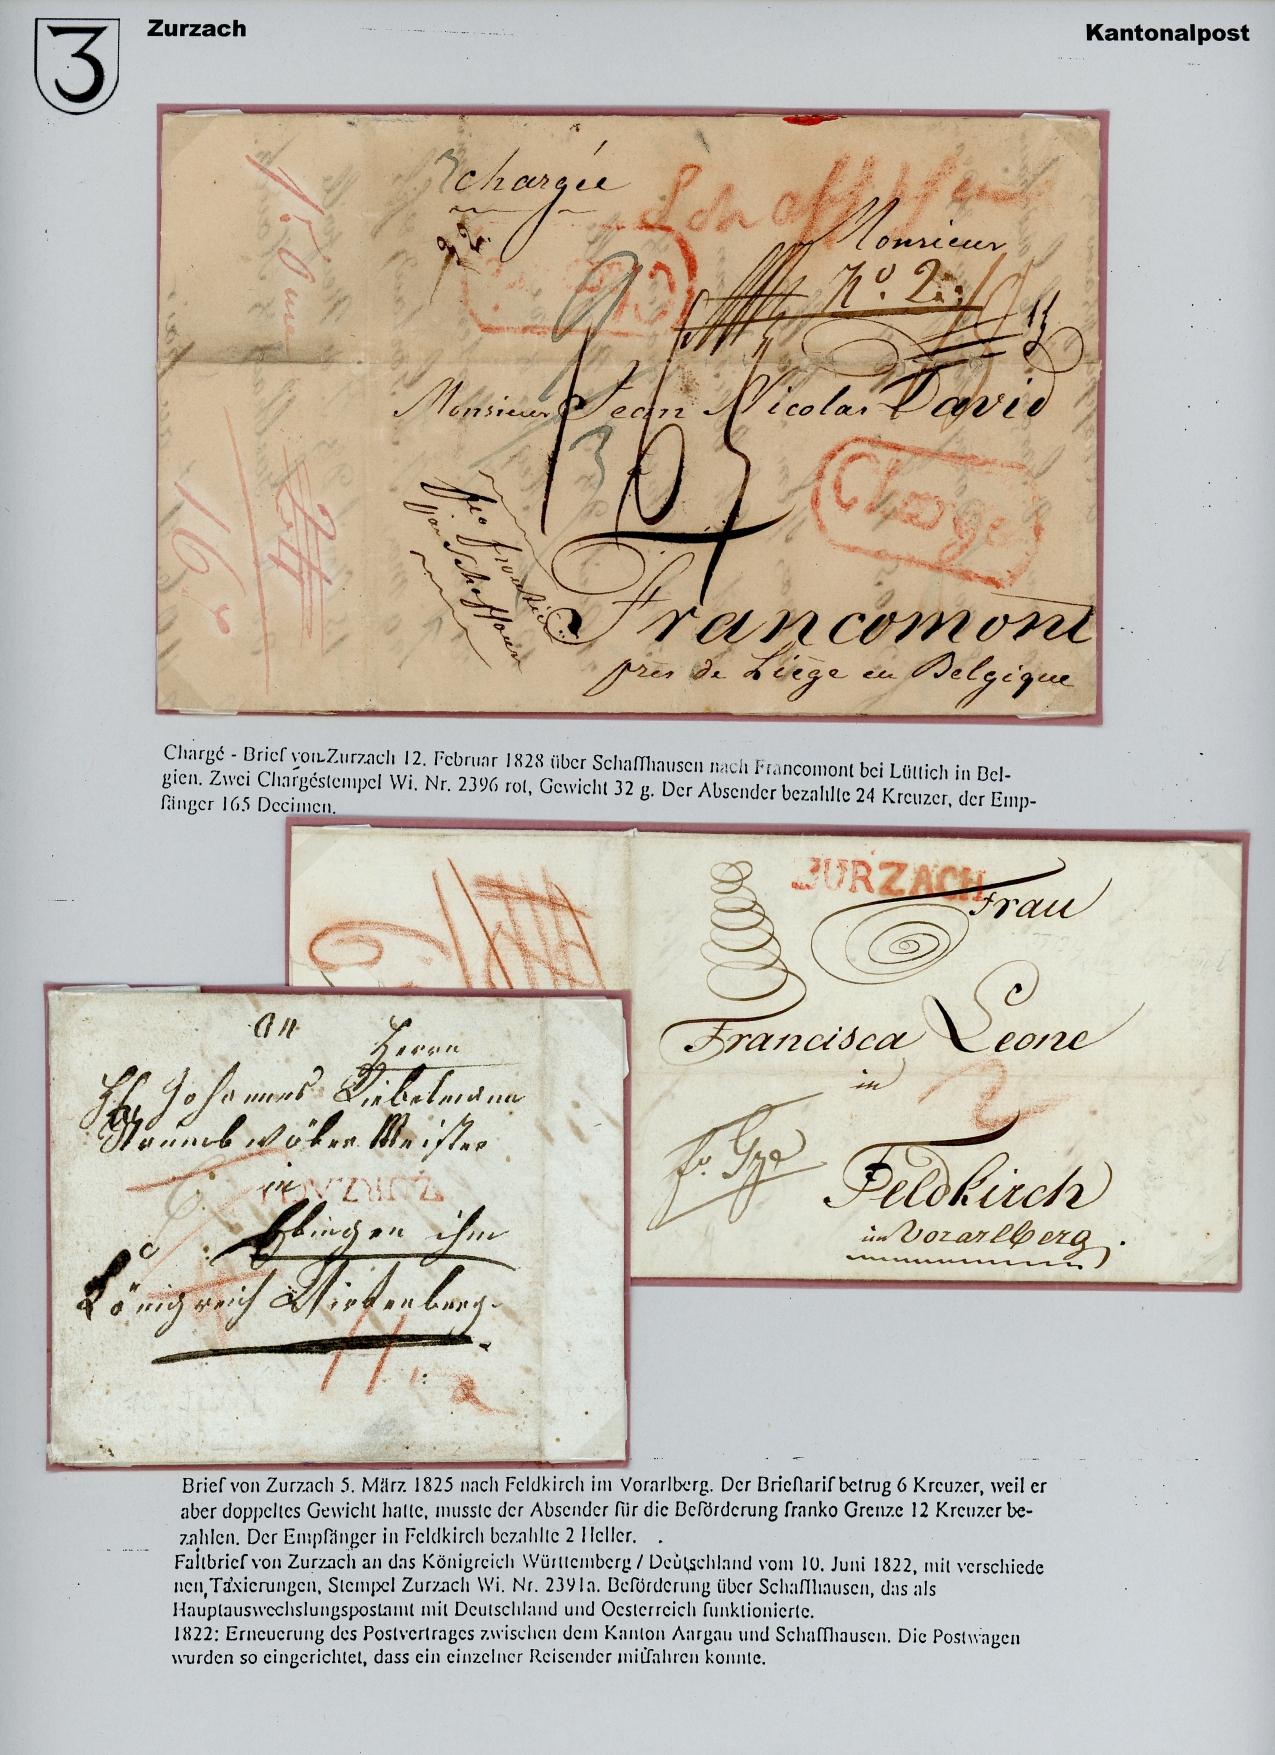 3
Zurzach
Kantonalpost
chargée
Schaffhsen
Monsieur
No. 2.
Monsieur Jean Nicolas David
165
Chargé
Francomont
près de Liège en Belgique
Chargé - Brief von Zurzach 12. Februar 1828 über Schaffhausen nach Francomont bei Lüttich in Bel-
gien. Zwei Chargéstempel Wi. Nr. 2396 rot, Gewicht 32 g. Der Absender bezahlte 24 Kreuzer, der Emp-
fänger 165 Decimen.
ZURZACH
Frau
Francisca Leone
in
2
fr. Gze
Feldkirch
im Vorarlberg.
An
Herrn
Johannes Liebermann
Meister
in
ZURZACH
Ebingen ihm
Königreich Wirtenberg.
Brief von Zurzach 5. März 1825 nach Feldkirch im Vorarlberg. Der Brieftarif betrug 6 Kreuzer, weil er
aber doppeltes Gewicht hatte, musste der Absender für die Beförderung franko Grenze 12 Kreuzer be-
zahlen. Der Empfänger in Feldkirch bezahlte 2 Heller.
Faltbrief von Zurzach an das Königreich Württemberg / Deutschland vom 10. Juni 1822, mit verschiede
nen Taxierungen, Stempel Zurzach Wi. Nr. 2391a. Beförderung über Schaffhausen, das als
Hauptauswechslungspostamt mit Deutschland und Oesterreich funktionierte.
1822: Erneuerung des Postvertrages zwischen dem Kanton Aargau und Schaffhausen. Die Postwagen
wurden so eingerichtet, dass ein einzelner Reisender mitfahren konnte.